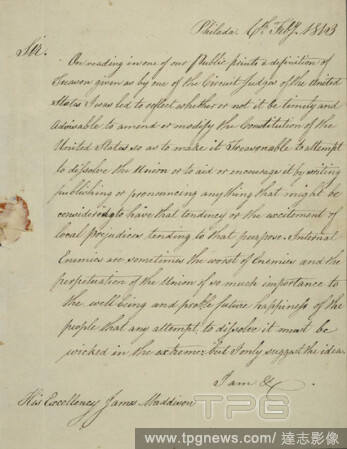 Philada 6th Feby. 1813
Sir.
On reading in one of our Public prints a definition of
Treason given as by one of the Circuit Judges of the United
States I was led to reflect whether or not it be timely and
Advisable to amend or modify the Constitution of the
United States so as to make it Treasonable to attempt
to dissolve the Union or to aid or encourage it by writing
publishing or pronouncing anything that might be
considered to have that tendency or the excitement of
local prejudices tending to that purpose. Internal
Enemies are sometimes the worst of Enemies and the
perpetuation of the Union of so much importance to
the well being and future happiness of the
people that any attempt to dissolve it must be
wicked in the extreme, but I only suggest the idea.
I am &c
His Excellency James Maddison
TPG
www.tpgnews.com | 達志影像